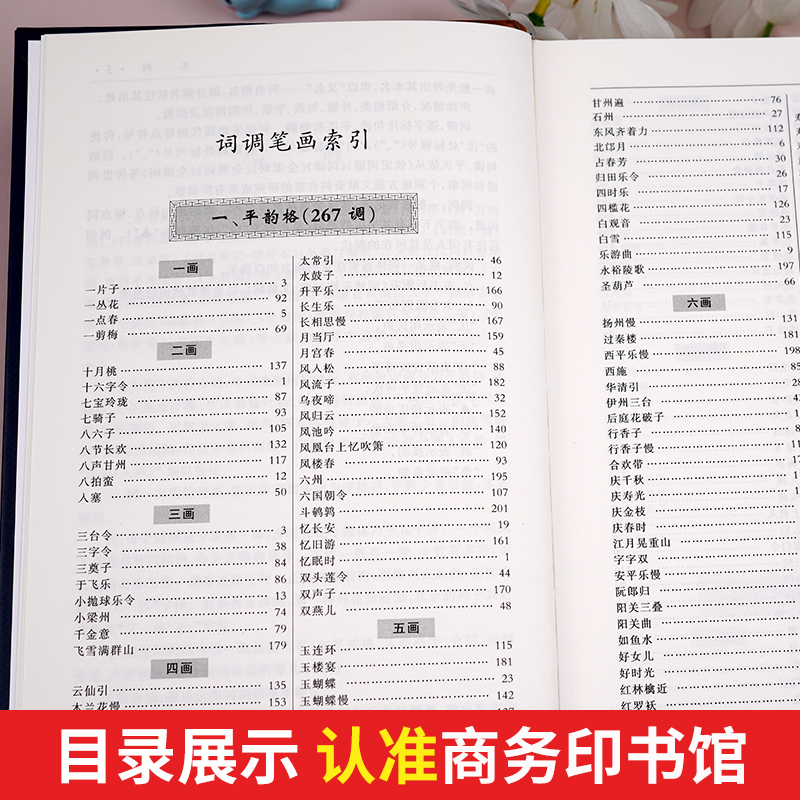 词调笔画索引
一、平韵格(267 调)
一画
一片子 3
一丛花 92
一点春 5
一剪梅 69
二画
十月桃 137
十六字令 1
七宝玲珑 87
七骑子 93
八六子 105
八节长欢 132
八声甘州 117
八拍蛮 12
入塞 50
三画
三台令 3
三字令 38
三奠子 84
于飞乐 86
小抛球乐令 13
小梁州 74
千金意 79
飞雪满群山 179
四画
云仙引 135
木兰花慢 153
太常引 46
水鼓子 12
升平乐 166
长生乐 90
长相思慢 167
月当厅 159
月宫春 45
风入松 88
风流子 182
乌夜啼 32
凤归云 152
凤池吟 140
凤凰台上忆吹箫 120
凤楼春 93
六州 195
六国朝令 107
斗鹌鹑 201
忆长安 19
忆旧游 161
忆眠时 1
双头莲令 44
双声子 170
双燕儿 48
五画
玉连环 115
玉楼宴 181
玉蝴蝶 23
玉蝴蝶慢 142
甘州遍 76
石州 27
东风齐着力 112
北邙月 6
占春芳 30
归田乐令 26
四时乐 17
四槛花 126
白观音 23
白雪 115
乐游曲 9
永裕陵歌 197
圣葫芦 66
六画
扬州慢 131
过秦楼 181
西平乐慢 198
西施 85
华清引 28
伊州三台
后庭花破子
行香子
行香子慢
合欢带
庆千秋
庆寿光
庆金枝
庆春时
江月晃重山
字字双
安平乐慢
阮郎归
阳关三叠
阳关曲
如鱼水
好女儿
好时光
红林檎近
红罗袄
目录展示 认准商务印书馆